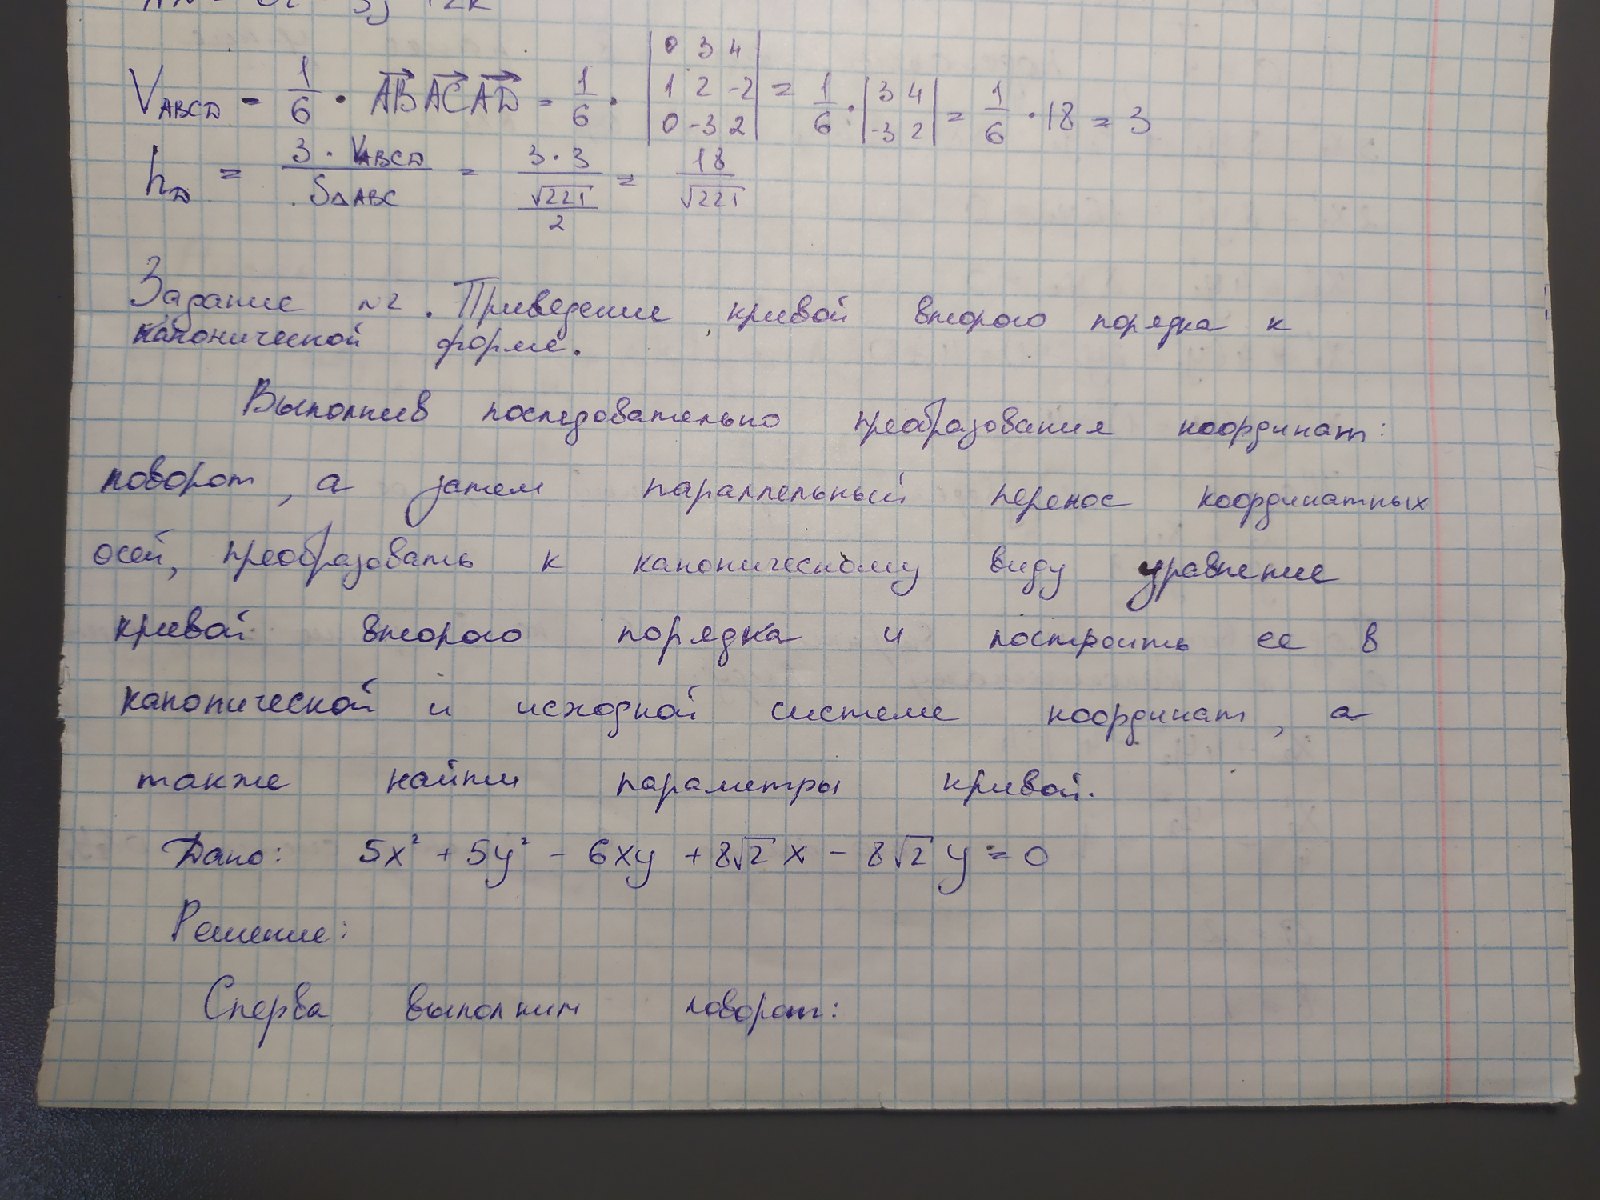 V_ABCD = 1/6 · AB AC AD = 1/6 · |0 3 4; 1 2 -2; 0 -3 2| = 1/6 · |3 4; -3 2| = 1/6 · 18 = 3
h_D = 3 · V_ABCD / S△ABC = 3 · 3 / (√221 / 2) = 18 / √221
Задание №2. Приведение кривой второго порядка к
канонической форме.
Выполнив последовательно преобразования координат:
поворот, а затем параллельный перенос координатных
осей, преобразовать к каноническому виду уравнение
кривой второго порядка и построить ее в
канонической и исходной системе координат, а
также найти параметры кривой.
Дано: 5x² + 5y² - 6xy + 8√2 x - 8√2 y = 0
Решение:
Сперва выполним поворот: